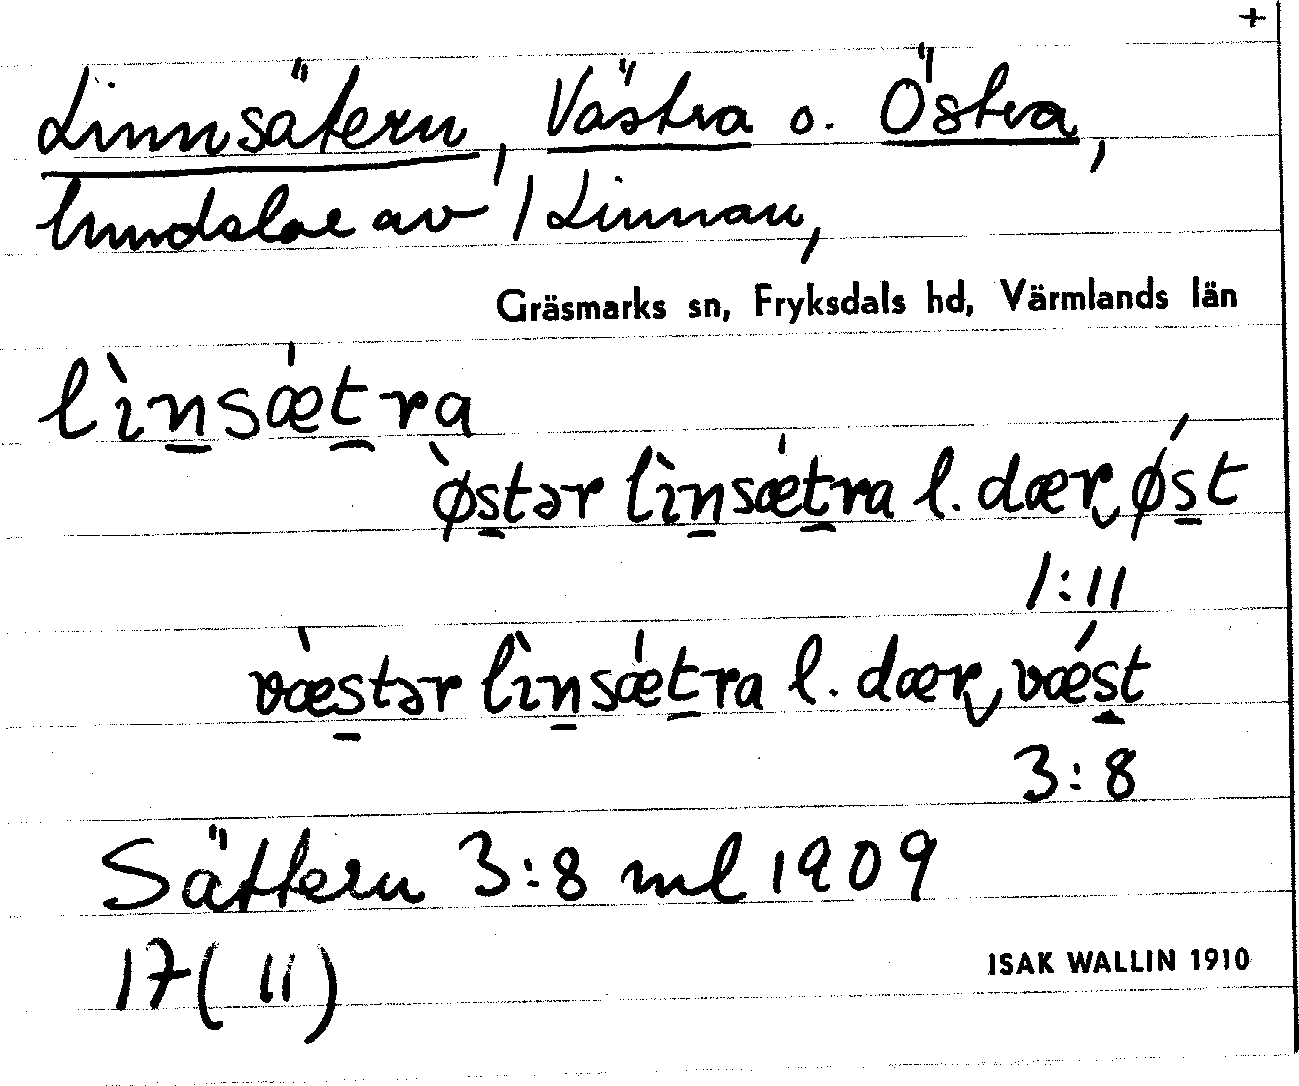 +
Linnsätern, Västra o. Östra,
hmdslae av 1 Linnan,
Gräsmarks sn, Fryksdals hd, Värmlands län
lìnsǽtra
ø̀stər lìnsǽtra l. dær ǿst
1:11
væ̀stər lìnsǽtra l. dær vǽst
3:8
Sättern 3:8 ml 1909
17( 11 )
ISAK WALLIN 1910